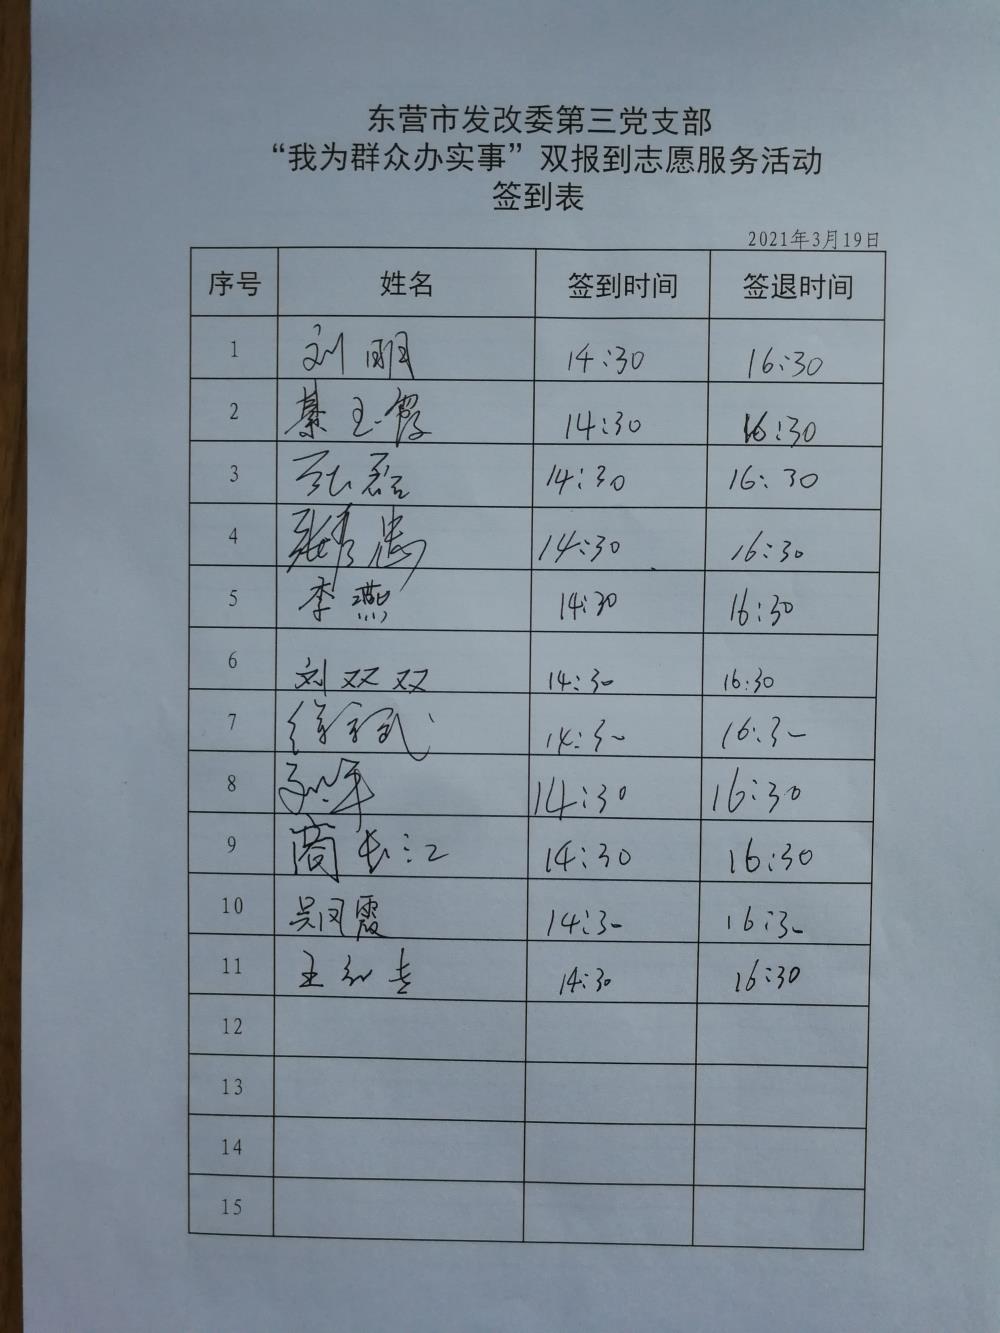 东营市发改委第三党支部
“我为群众办实事”双报到志愿服务活动
签到表
2021年3月19日
序号 姓名 签到时间 签退时间
1 刘明 14:30 16:30
2 綦玉霞 14:30 16:30
3 张磊 14:30 16:30
4 张秀忠 14:30 16:30
5 李燕 14:30 16:30
6 刘双双 14:30 16:30
7 14:30 16:30
8 14:30 16:30
9 商长江 14:30 16:30
10 吴凤霞 14:30 16:30
11 王 14:30 16:30
12
13
14
15